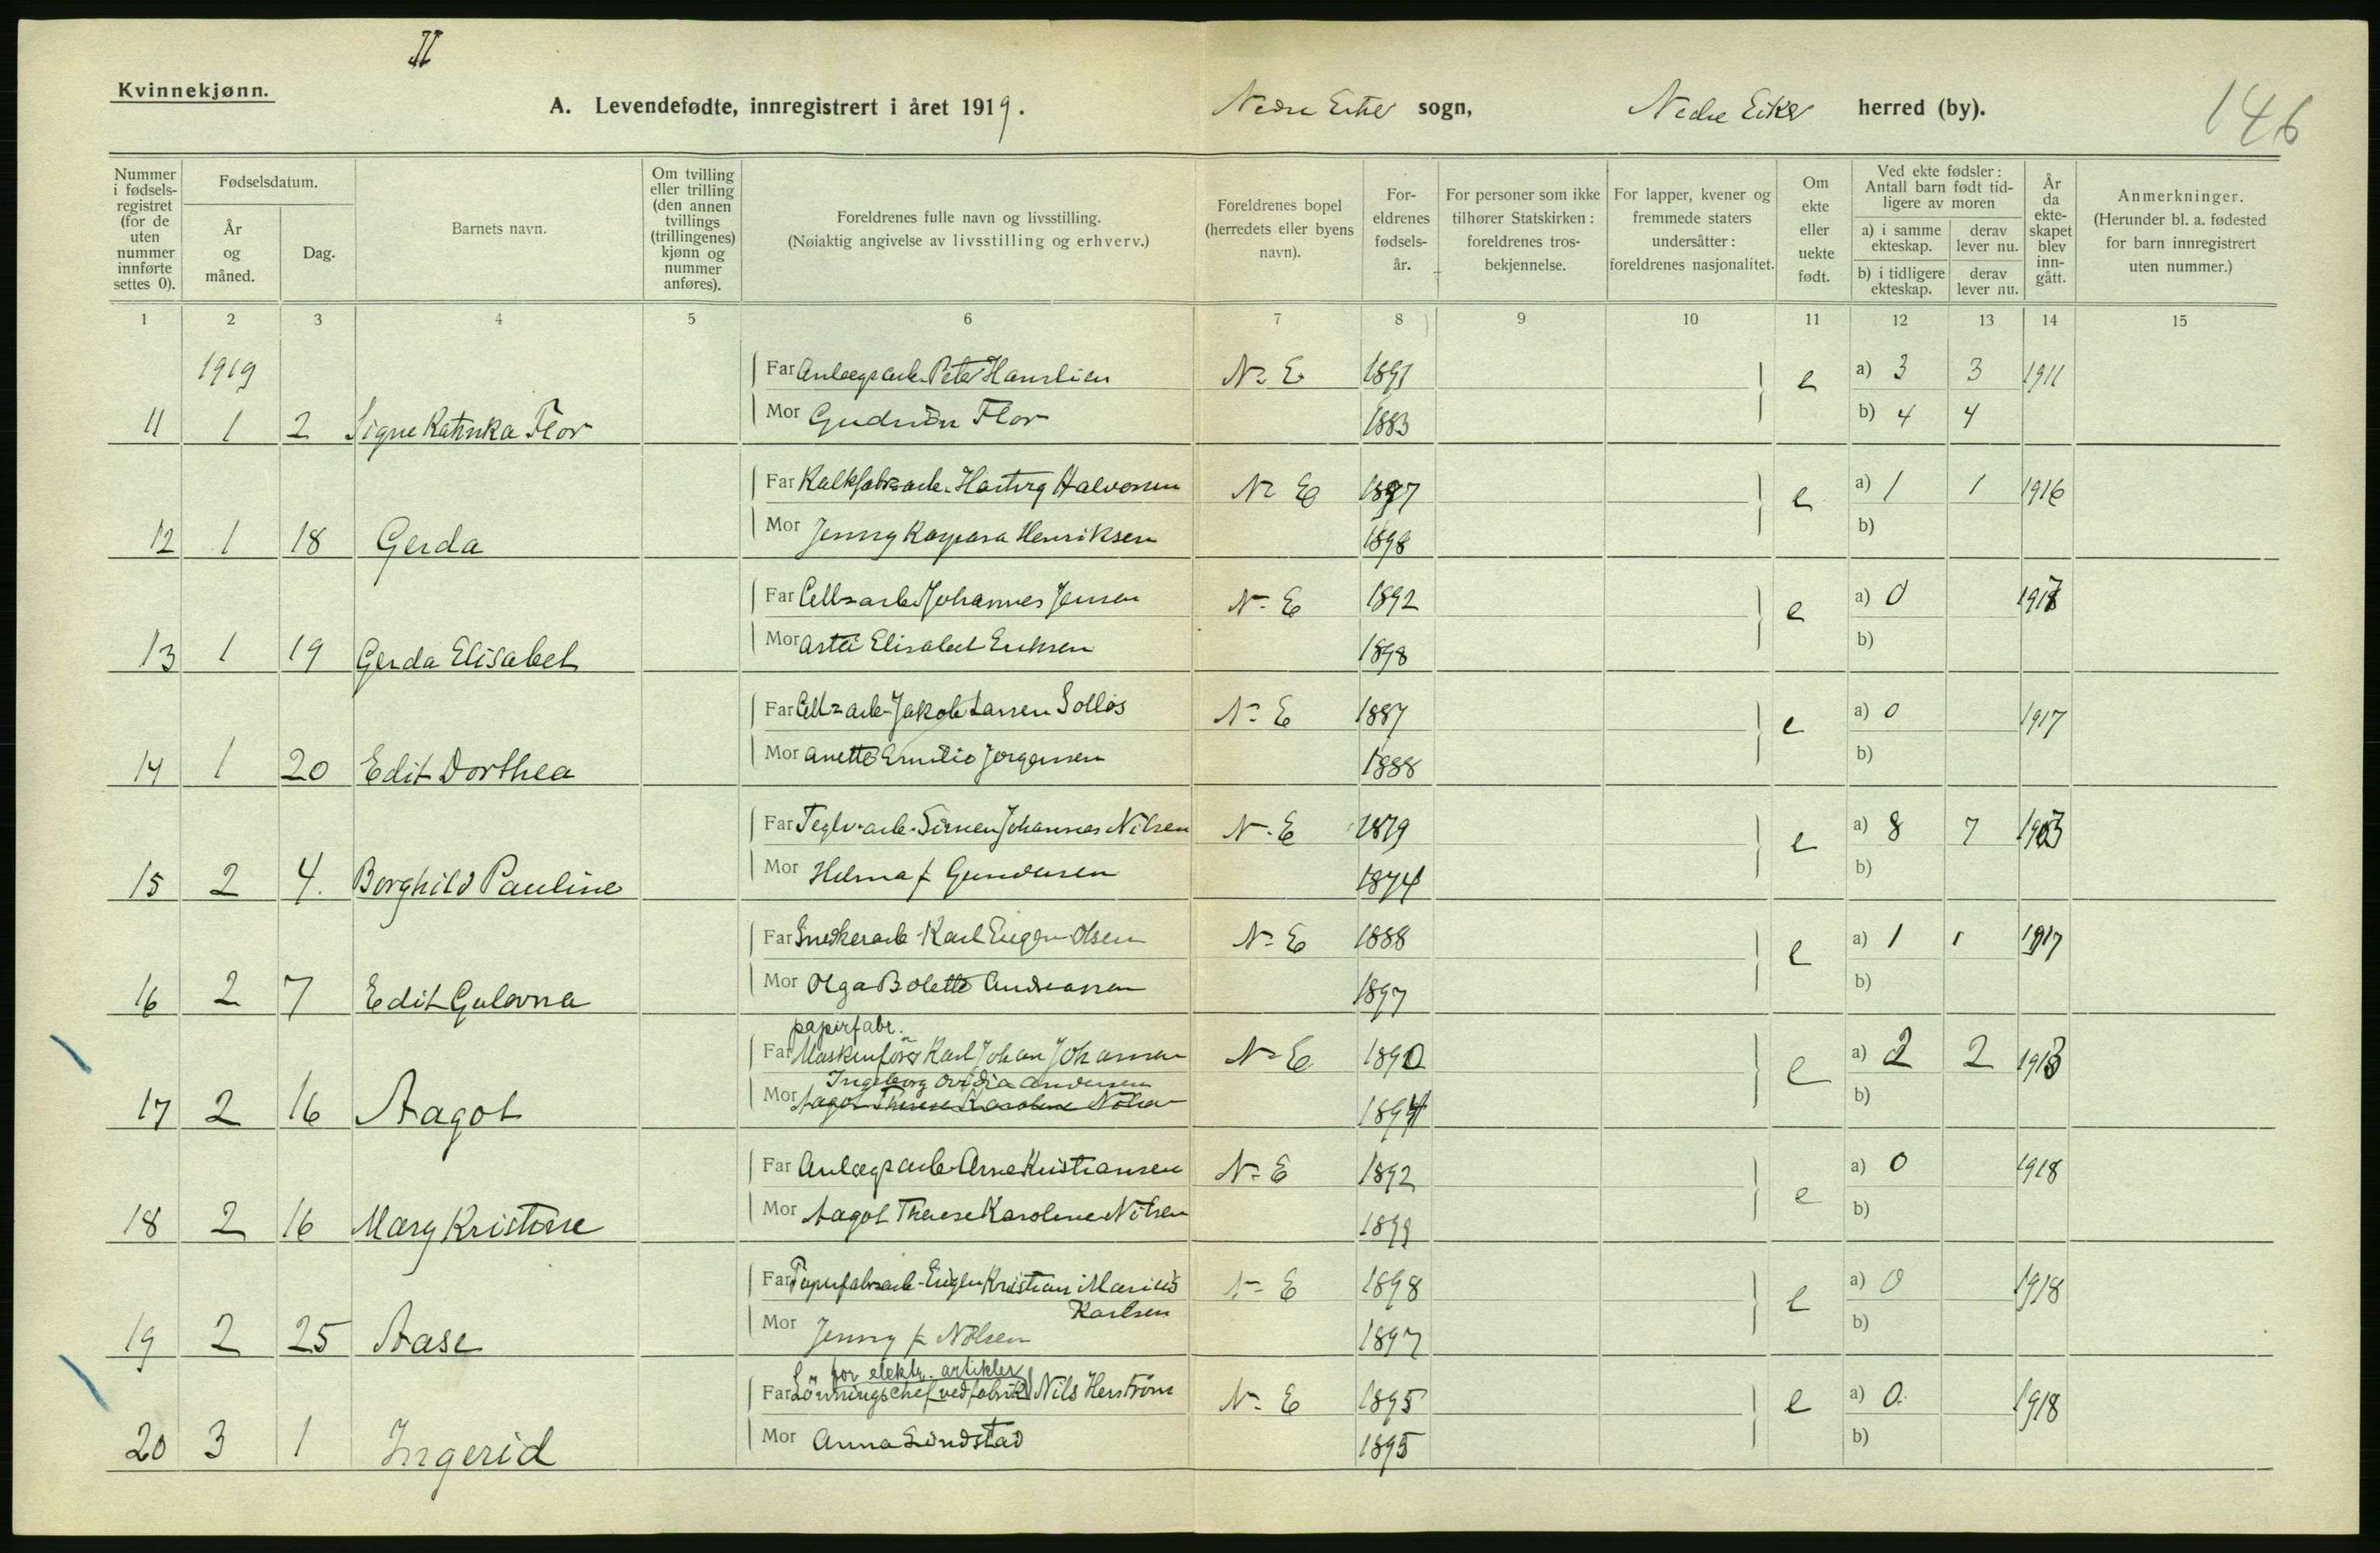 II
Kvinnekjønn.
A. Levendefødte, innregistrert i året 1919. Nedre Eiker sogn, Nedre Eiker herred (by).
146
Nummer i fødsels-registret (for de uten nummer innførte settes 0).
Fødselsdatum.
År og måned.
Dag.
Barnets navn.
Om tvilling eller trilling (den annen tvillings (trillingenes) kjønn og nummer anføres).
Foreldrenes fulle navn og livsstilling.
(Nøiaktig angivelse av livsstilling og erhverv.)
Foreldrenes bopel (herredets eller byens navn).
For-eldrenes fødsels-år.
For personer som ikke tilhører Statskirken: foreldrenes tros-bekjennelse.
For lapper, kvener og fremmede staters undersåtter: foreldrenes nasjonalitet.
Om ekte eller uekte født.
Ved ekte fødsler: Antall barn født tid-ligere av moren
a) i samme ekteskap.
derav lever nu.
b) i tidligere ekteskap.
derav lever nu.
År da ekte-skapet blev inn-gått.
Anmerkninger.
(Herunder bl. a. fødested for barn innregistrert uten nummer.)
1 2 3 4 5 6 7 8 9 10 11 12 13 14 15
1919
Far Anlægsarb. Peter Hanslien N. E 1891 e a) 3 3 1911
11 1 2 Signe Katinka Flor Mor Gudrun Flor 1883 b) 4 4
Far Kalkfabr=arb. Hartvig Halvorsen N. E 1897 e a) 1 1 1916
12 1 18 Gerda Mor Jenny Kaspara Henriksen 1898 b)
Far Cell=arb. Johannes Jensen N. E 1892 e a) 0
13 1 19 Gerda Elisabet Mor Asta Elisabet Eriksen 1898 b)
Far Cell=arb. Jakob Larsen Solløs N. E 1887 e a) 0 1917
14 1 20 Edit Dorthea Mor Anette Emilie Jørgensen 1888 b)
Far Teglv.arb. Simen Johannes Nilsen N. E 1879 e a) 8 7 1903
15 2 4. Borghild Pauline Mor Helma f. Gundersen 1874 b)
Far Snedkerarb. Karl Eugen Olsen N. E 1888 e a) 1 1 1917
16 2 7 Edit Gulovna Mor Olga Bolette Andreassen 1897 b)
papirfabr.
Far Maskinfører Karl Johan Johansen N. E 1890 e a) 2 2 1913
Ingeborg Ovidia Andersen
17 2 16 Aagot Mor Aagot Therese Karoline Nilsen 1894 b)
Far Anlægsarb. Arne Kristiansen N. E 1892 e a) 0 1918
18 2 16 Mary Kristine Mor Aagot Therese Karoline Nilsen 1899 b)
Far Papirfabr=arb. Eugen Kristian Marius N. E 1898 e a) 0 1918
Karlsen
19 2 25 Aase Mor Jenny f. Nilsen 1897 b)
for elektr. artikler
Far Lønningschef ved fabrik Nils Herstrøm N. E 1895 e a) 0. 1918
20 3 1 Ingerid Mor Anna Lindstad 1895 b)